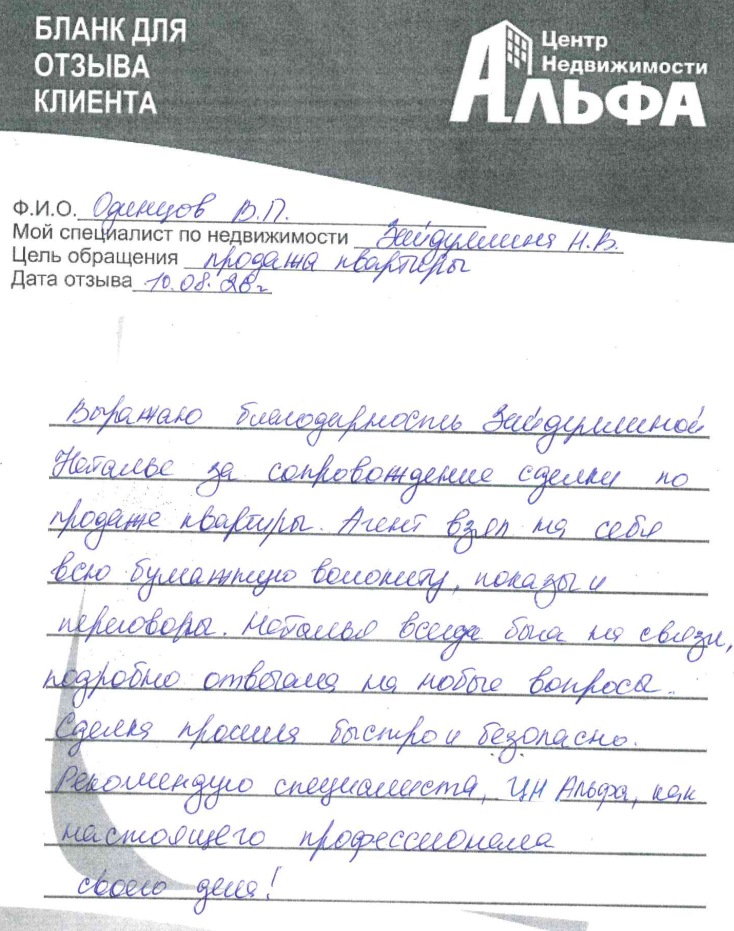 БЛАНК ДЛЯ
ОТЗЫВА
КЛИЕНТА
Центр
Недвижимости
АЛЬФА
Ф.И.О. Одинцов В.П.
Мой специалист по недвижимости Зайдуллина Н.В.
Цель обращения продажа квартиры
Дата отзыва 10.08.20г
Выражаю благодарность Зайдуллиной
Наталье за сопровождение сделки по
продаже квартиры. Агент взял на себя
всю бумажную волокиту, показы и
переговоры. Наталья всегда была на связи,
подробно отвечала на любые вопросы.
Сделка прошла быстро и безопасно.
Рекомендую специалиста, ЦН Альфа, как
настоящего профессионала
своего дела!